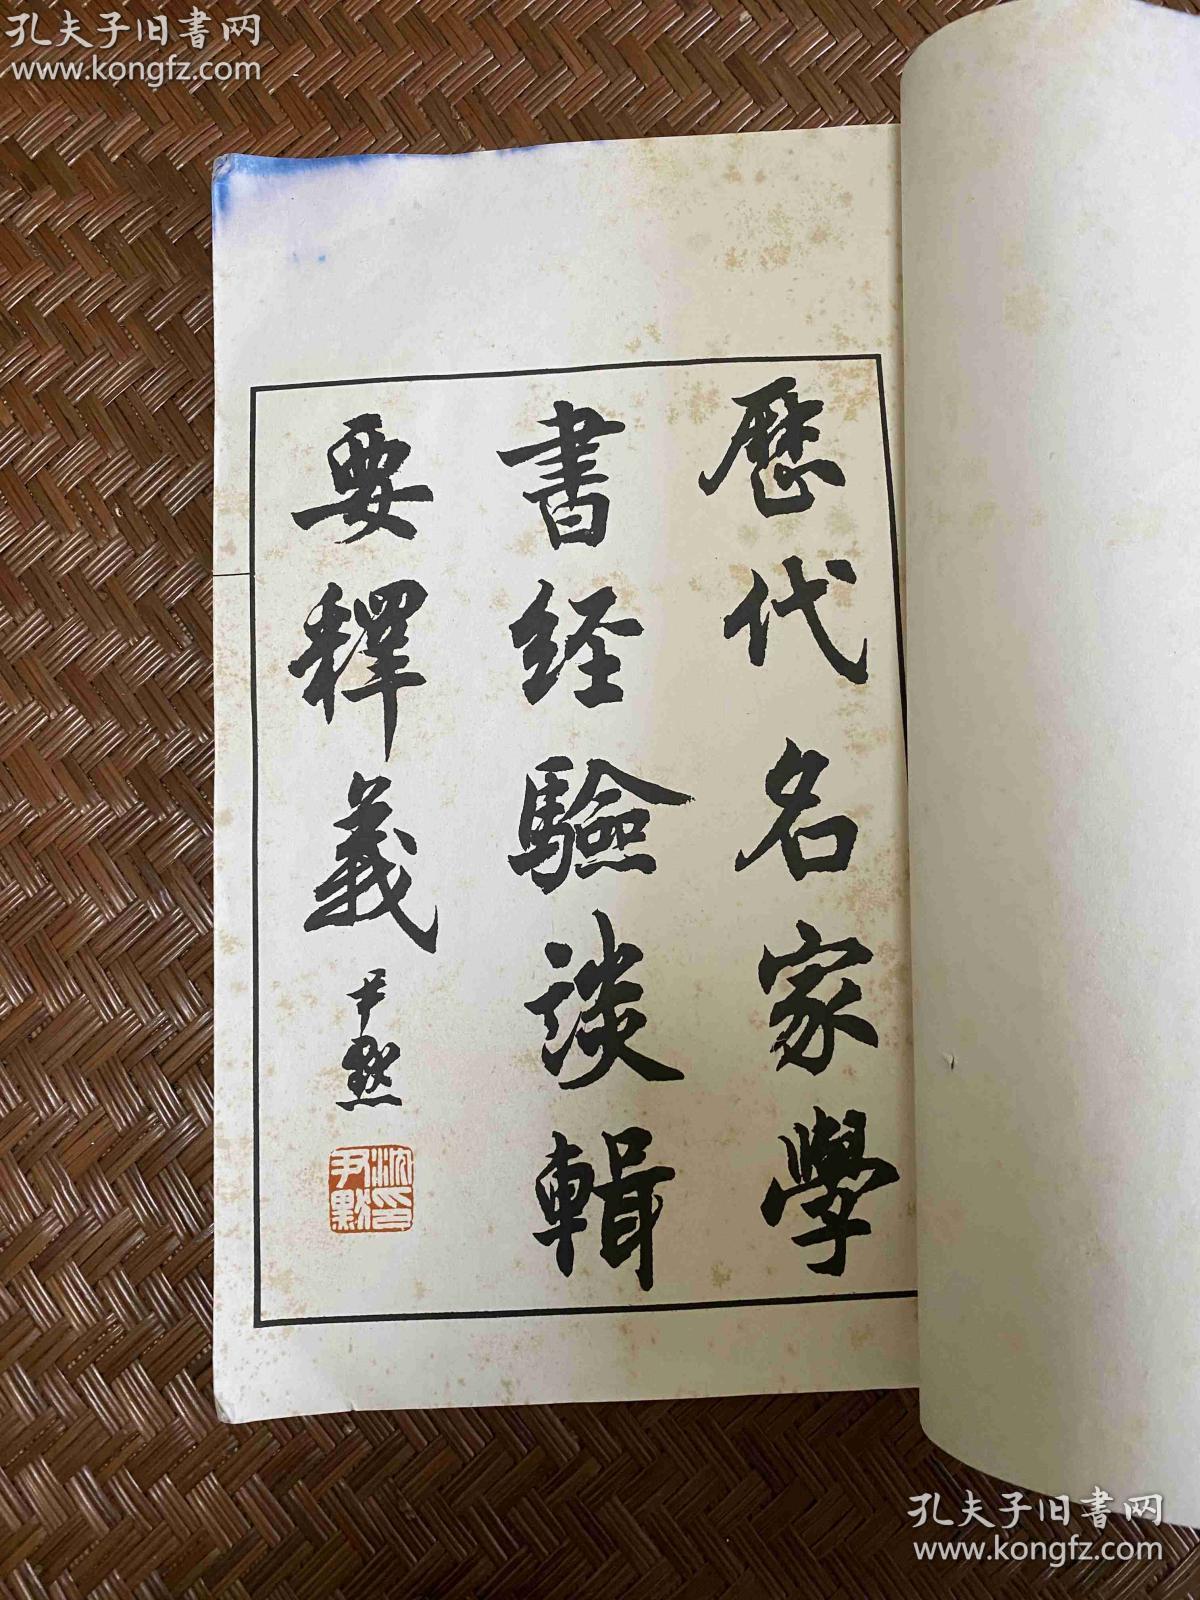 孔夫子旧書网
www.kongfz.com
歷代名家學
書经驗談輯
要釋義
尹默
沈尹默印
孔夫子旧書网
www.kongfz.com